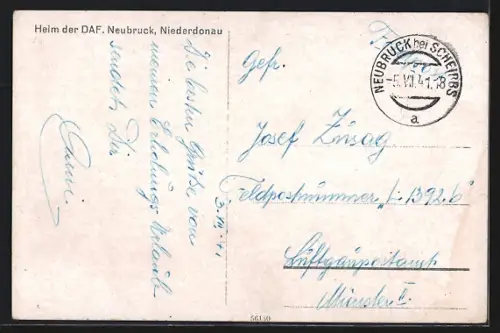 Heim der DAF. Neubruck, Niederdonau
Die besten Grüße von
meinem Erholungs Urlaub
sendet Dir
3. VII. 41
NEUBRUCK bei SCHEIBBS
-5.VII.41.18
a
Gefr.
Josef
Feldpostnummer „L 1392 b"
Luftgaupostamt
Münster II